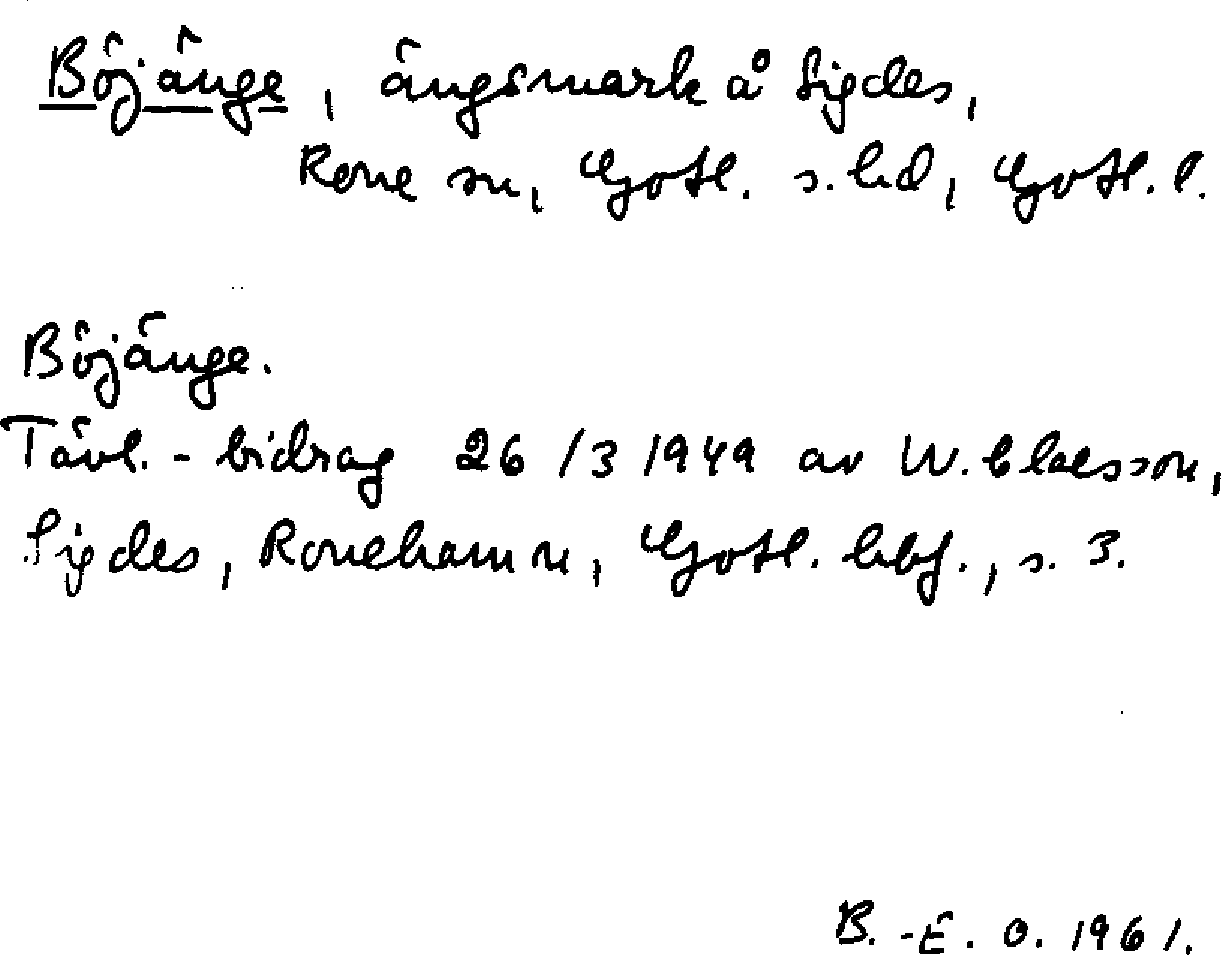 Böjänge, ängsmark å Sigdes,
Rone sn, Gotl. s. hd, Gotl. l.
Böjänge.
Tävl. - bidrag 26/3 1949 av W. Claesson,
Sigdes, Ronehamn, Gotl. hbf., s. 3.
B.-E. O. 1961.